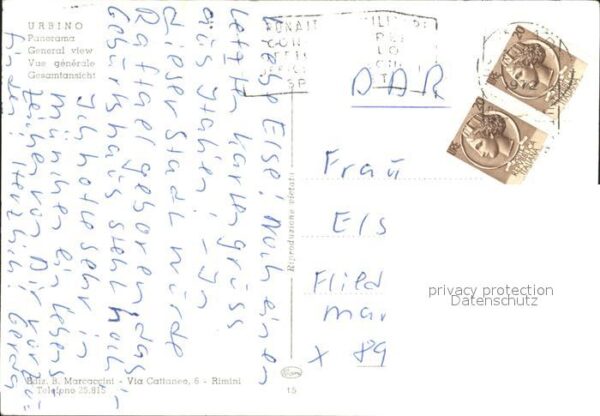 URBINO
Panorama
General view
Vue générale
Gesamtansicht
Liebe Else! Noch einen
letzten Kartengruss
aus Italien! - In
dieser Stadt wurde
Raffael geboren, das
Geburtshaus steht noch! -
Ich hoffe sehr in
München ein Lebens-
zeichen von Dir vorzu-
finden! Herzlich! Gerda
Ediz. B. Marcaccini - Via Cattaneo, 6 - Rimini
Telefono 25.815
Riproduzione vietata
15
DDR
Frau
Els
Flild
mar
x 89
privacy protection
Datenschutz